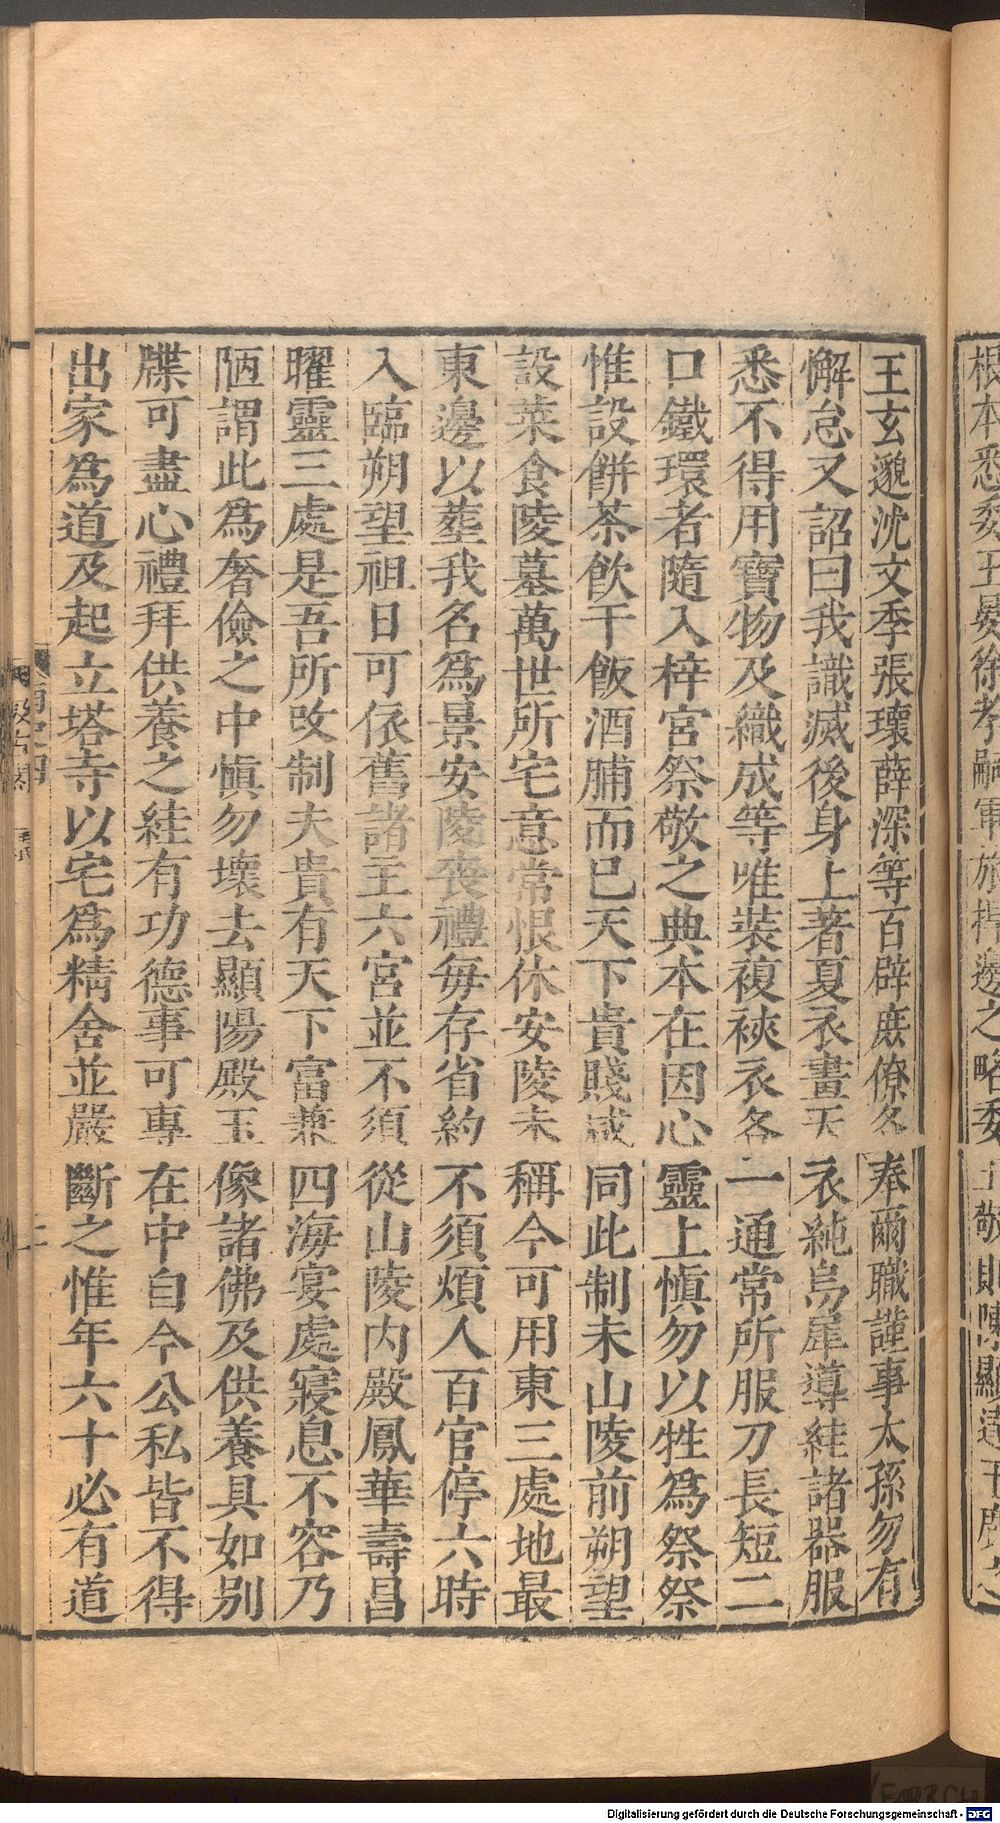 根本悉委王晏徐孝嗣軍旅捍邊之略委王敬則陳顯達王廣之
王玄邈沈文季張瓌薛深等百辟庶僚各奉爾職謹事太孫勿有
懈怠又詔曰我識滅後身上著夏衣畫天衣純烏犀導絓諸器服
悉不得用寶物及織成等唯裝複裌衣各一通常所服刀長短二
口鐵環者隨入梓宮祭敬之典本在因心靈上慎勿以牲爲祭祭
惟設餅茶飲干飯酒脯而已天下貴賤咸同此制未山陵前朔望
設菜食陵墓萬世所宅意常恨休安陵未稱今可用東三處地最
東邊以塟我名爲景安陵喪禮每存省約不須煩人百官停六時
入臨朔望祖日可依舊諸主六宮並不須從山陵内殿鳳華壽昌
曜靈三處是吾所攺制夫貴有天下富兼四海宴處寢息不容乃
陋謂此爲奢儉之中慎勿壞去顯陽殿玉像諸佛及供養具如別
牒可盡心禮拜供養之絓有功德事可專在中自今公私皆不得
出家爲道及起立塔寺以宅爲精舍並嚴斷之惟年六十必有道
Digitalisierung gefördert durch die Deutsche Forschungsgemeinschaft - DFG